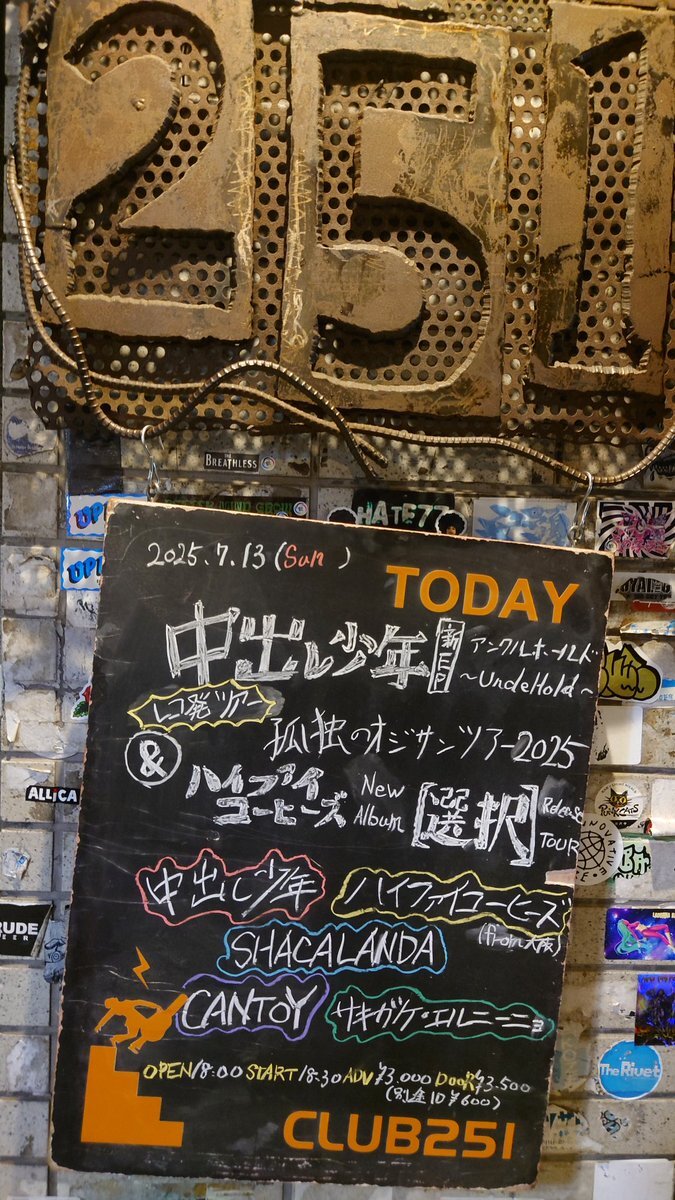 251
THE BREATHLESS
HATE77
2025.7.13 (Sun)
TODAY
中出し少年 新EP アンクルホールド
~UndeHold~
レコ発ツアー
孤独のオジサンツアー2025
&
ハイファイコーヒーズ New Album [選択] Release TOUR
中出し少年 ハイファイコーヒーズ
(from 大阪)
SHACALANDA
CANTOY サキガケ・エルニーニョ
OPEN/18:00 START/18:30 ADV ¥3.000 DOOR ¥3.500
(別途1D ¥600)
CLUB251
ALLiCA
PUNKCATS
The Rivet